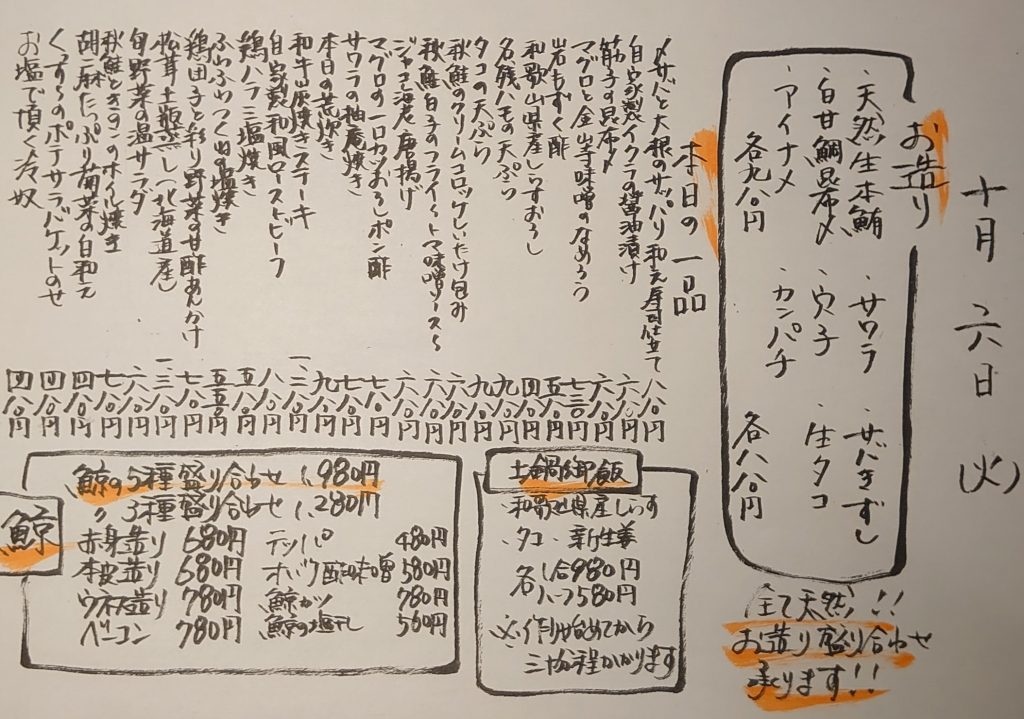 十月六日(火)
お造り
・天然生本鮪 ・サワラ ・サバきずし
・白甘鯛昆布〆 ・穴子 ・生タコ
・アイナメ ・カンパチ
各九八〇円 各八八〇円
全て天然!!
お造り盛り合わせ
承ります!!
本日の一品
〆サバと大根のサッパリ和え寿司仕立て 八八〇円
自家製イクラの醤油漬け 六八〇円
筋子の昆布〆 六八〇円
マグロと金山寺味噌のなめろう 七三〇円
岩もずく酢 五八〇円
和歌山県産しらすおろし 四八〇円
名残ハモの天ぷら 九八〇円
タコの天ぷら 九八〇円
秋鮭のクリームコロッケしいたけ包み 六八〇円
秋鮭白子のフライ〜トマト味噌ソース〜 六八〇円
ジャコ海老唐揚げ 六八〇円
マグロの一口カツおろしポン酢 七八〇円
サワラの柚庵焼き 七八〇円
本日の荒炊き 九八〇円
和牛山灰焼きステーキ 一、二八〇円
自家製和風ローストビーフ 八八〇円
鶏ハラミ塩焼き 五八〇円
ふわふわつくねの塩焼き 五五〇円
鶏団子と彩り野菜の甘酢あんかけ 七八〇円
松茸土瓶蒸し(北海道産) 一、三八〇円
旬野菜の温サラダ 六八〇円
秋鮭ときのこのホイル焼き 七八〇円
胡麻たっぷり菊菜の白和え 四八〇円
くんせいのポテサラバゲットのせ 四八〇円
お塩で頂く冷奴 四八〇円
土鍋御飯
・和歌山県産しらす
・タコ ・新生姜
各一合980円
各ハーフ580円
※作り始めてから
三十分程かかります
鯨
鯨の5種盛り合わせ 1,980円
〃 3種盛り合わせ 1,280円
赤身造り 680円 テッパ 480円
本皮造り 680円 オバケ酢味噌 580円
ウネス造り 780円 鯨カツ 780円
ベーコン 780円 鯨の塩干し 560円